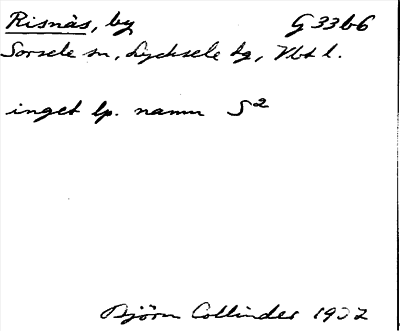 Risnäs, by G 33b6
Sorsele sn, Lycksele tg, Vbt l.
inget lp. namn S2
Björn Collinder 1932